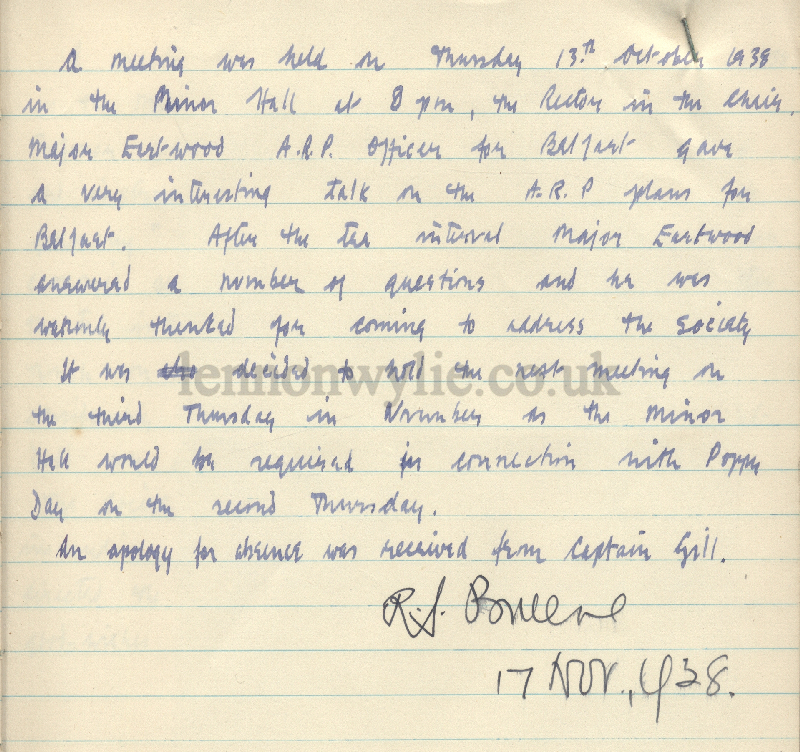 A meeting was held on Thursday 13th October 1938
in the Minor Hall at 8 pm, the Rector in the Chair.
Major Eastwood A.R.P. Officer for Belfast gave
a very interesting talk on the A.R.P plans for
Belfast. After the tea interval Major Eastwood
answered a number of questions and he was
warmly thanked for coming to address the Society
It was decided to hold the next meeting on
the third Thursday in November as the Minor
Hall would be required in connection with Poppy
Day on the second Thursday.
An apology for absence was received from Captain Gill.
R.S. Breene
17 Nov., 1938.
lennonwylie.co.uk